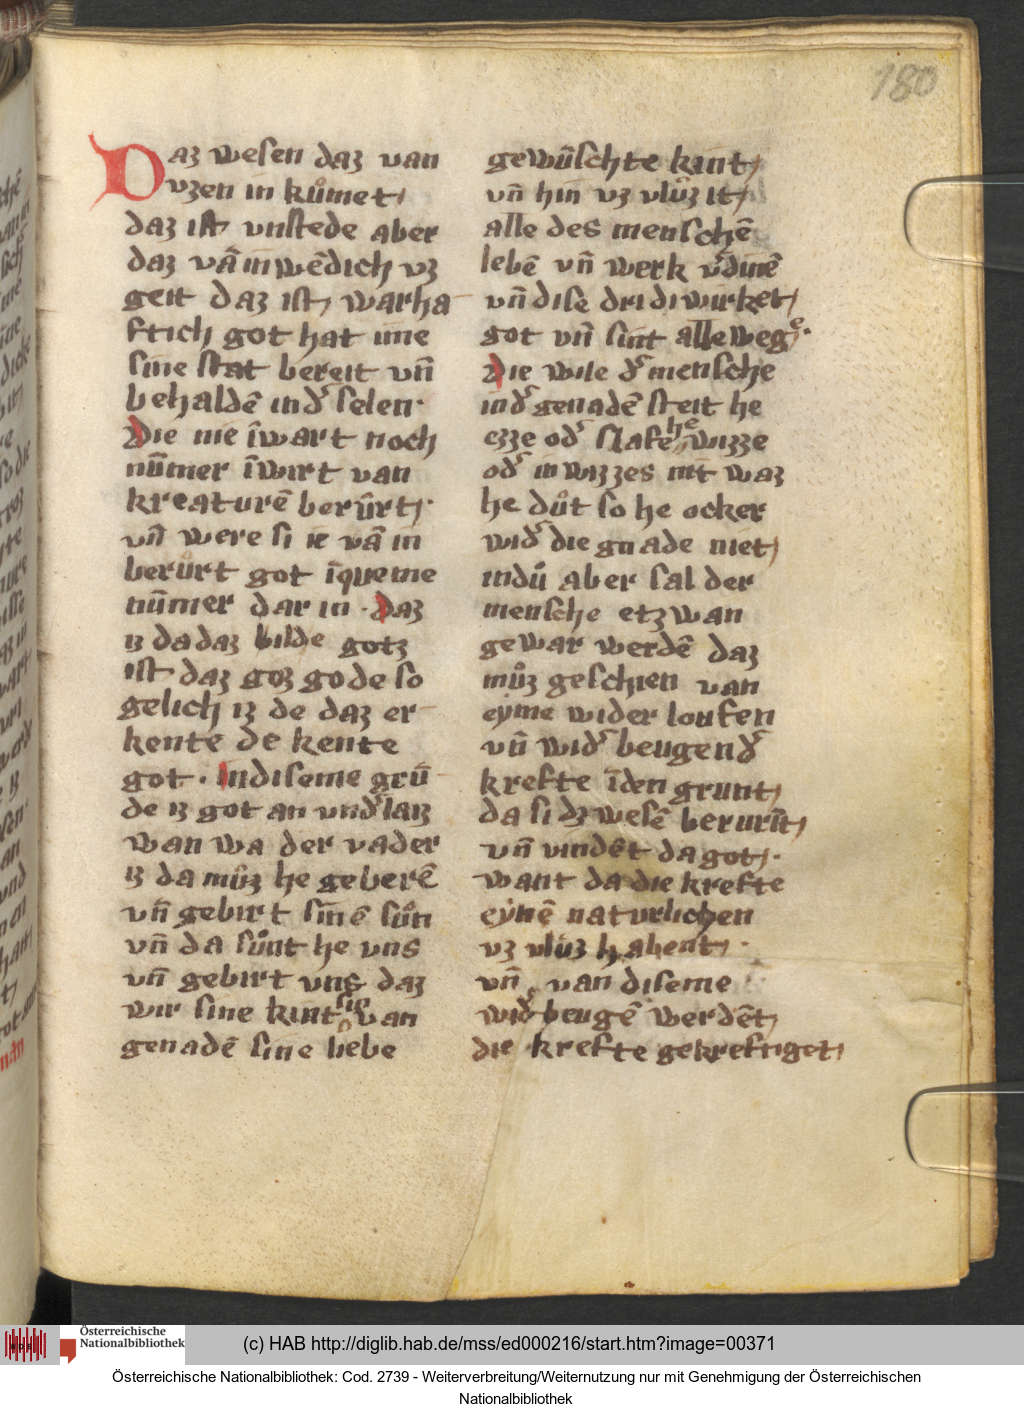 180
Daz wesen daz van
vzen in kůmet
daz ist vnstede aber
daz vā inwēdich vz
geit daz ist warha
ftich got hat ime
sine stat bereit vn̄
behaldē indʼ selen·
Die nie īwart noch
nūmer īwirt van
kreaturē berůrt·
vn̄ were si ie vā in
berůrt got īqueme
nūmer dar in · daz
iz da daz bilde gotz
ist daz goz gode so
gelich iz de daz er
kente de kente
got · indiseme grū
de iz got an vndʼlaz
wan wa der vader
iz da můz he geberē
vn̄ gebirt sinē sůn
vn̄ da sůnt he vns
vn̄ gebirt vns daz
wir sine kint sin van
genadē sine liebe
gewůschte kint
vn̄ hin vz vlůzit
alle des menschē
lebē vn̄ werk vʼdinē
vn̄ dise dri di wirket
got vn̄ sint alle wege·
Die wile dʼ mensche
indʼ genadē steit he
ezze odʼ slafe he wizze
odʼ in wizzes nit waz
he důt so he ocker
widʼ die gnade niet
indů aber sal der
mensche etzwan
gewar werdē daz
můz geschien van
eyme wider loufen
vn̄ widʼ beugen dʼ
krefte īden grunt
da si dz wesē berurīt
vn̄ vindēt da got·
want da die krefte
eynē naturlichen
vz vlůz habent·
vn̄ van diseme
widʼ beugē werdēt
die krefte gekreftiget
(c) HAB http://diglib.hab.de/mss/ed000216/start.htm?image=00371
Österreichische
Nationalbibliothek
Österreichische Nationalbibliothek: Cod. 2739 - Weiterverbreitung/Weiternutzung nur mit Genehmigung der Österreichischen
Nationalbibliothek